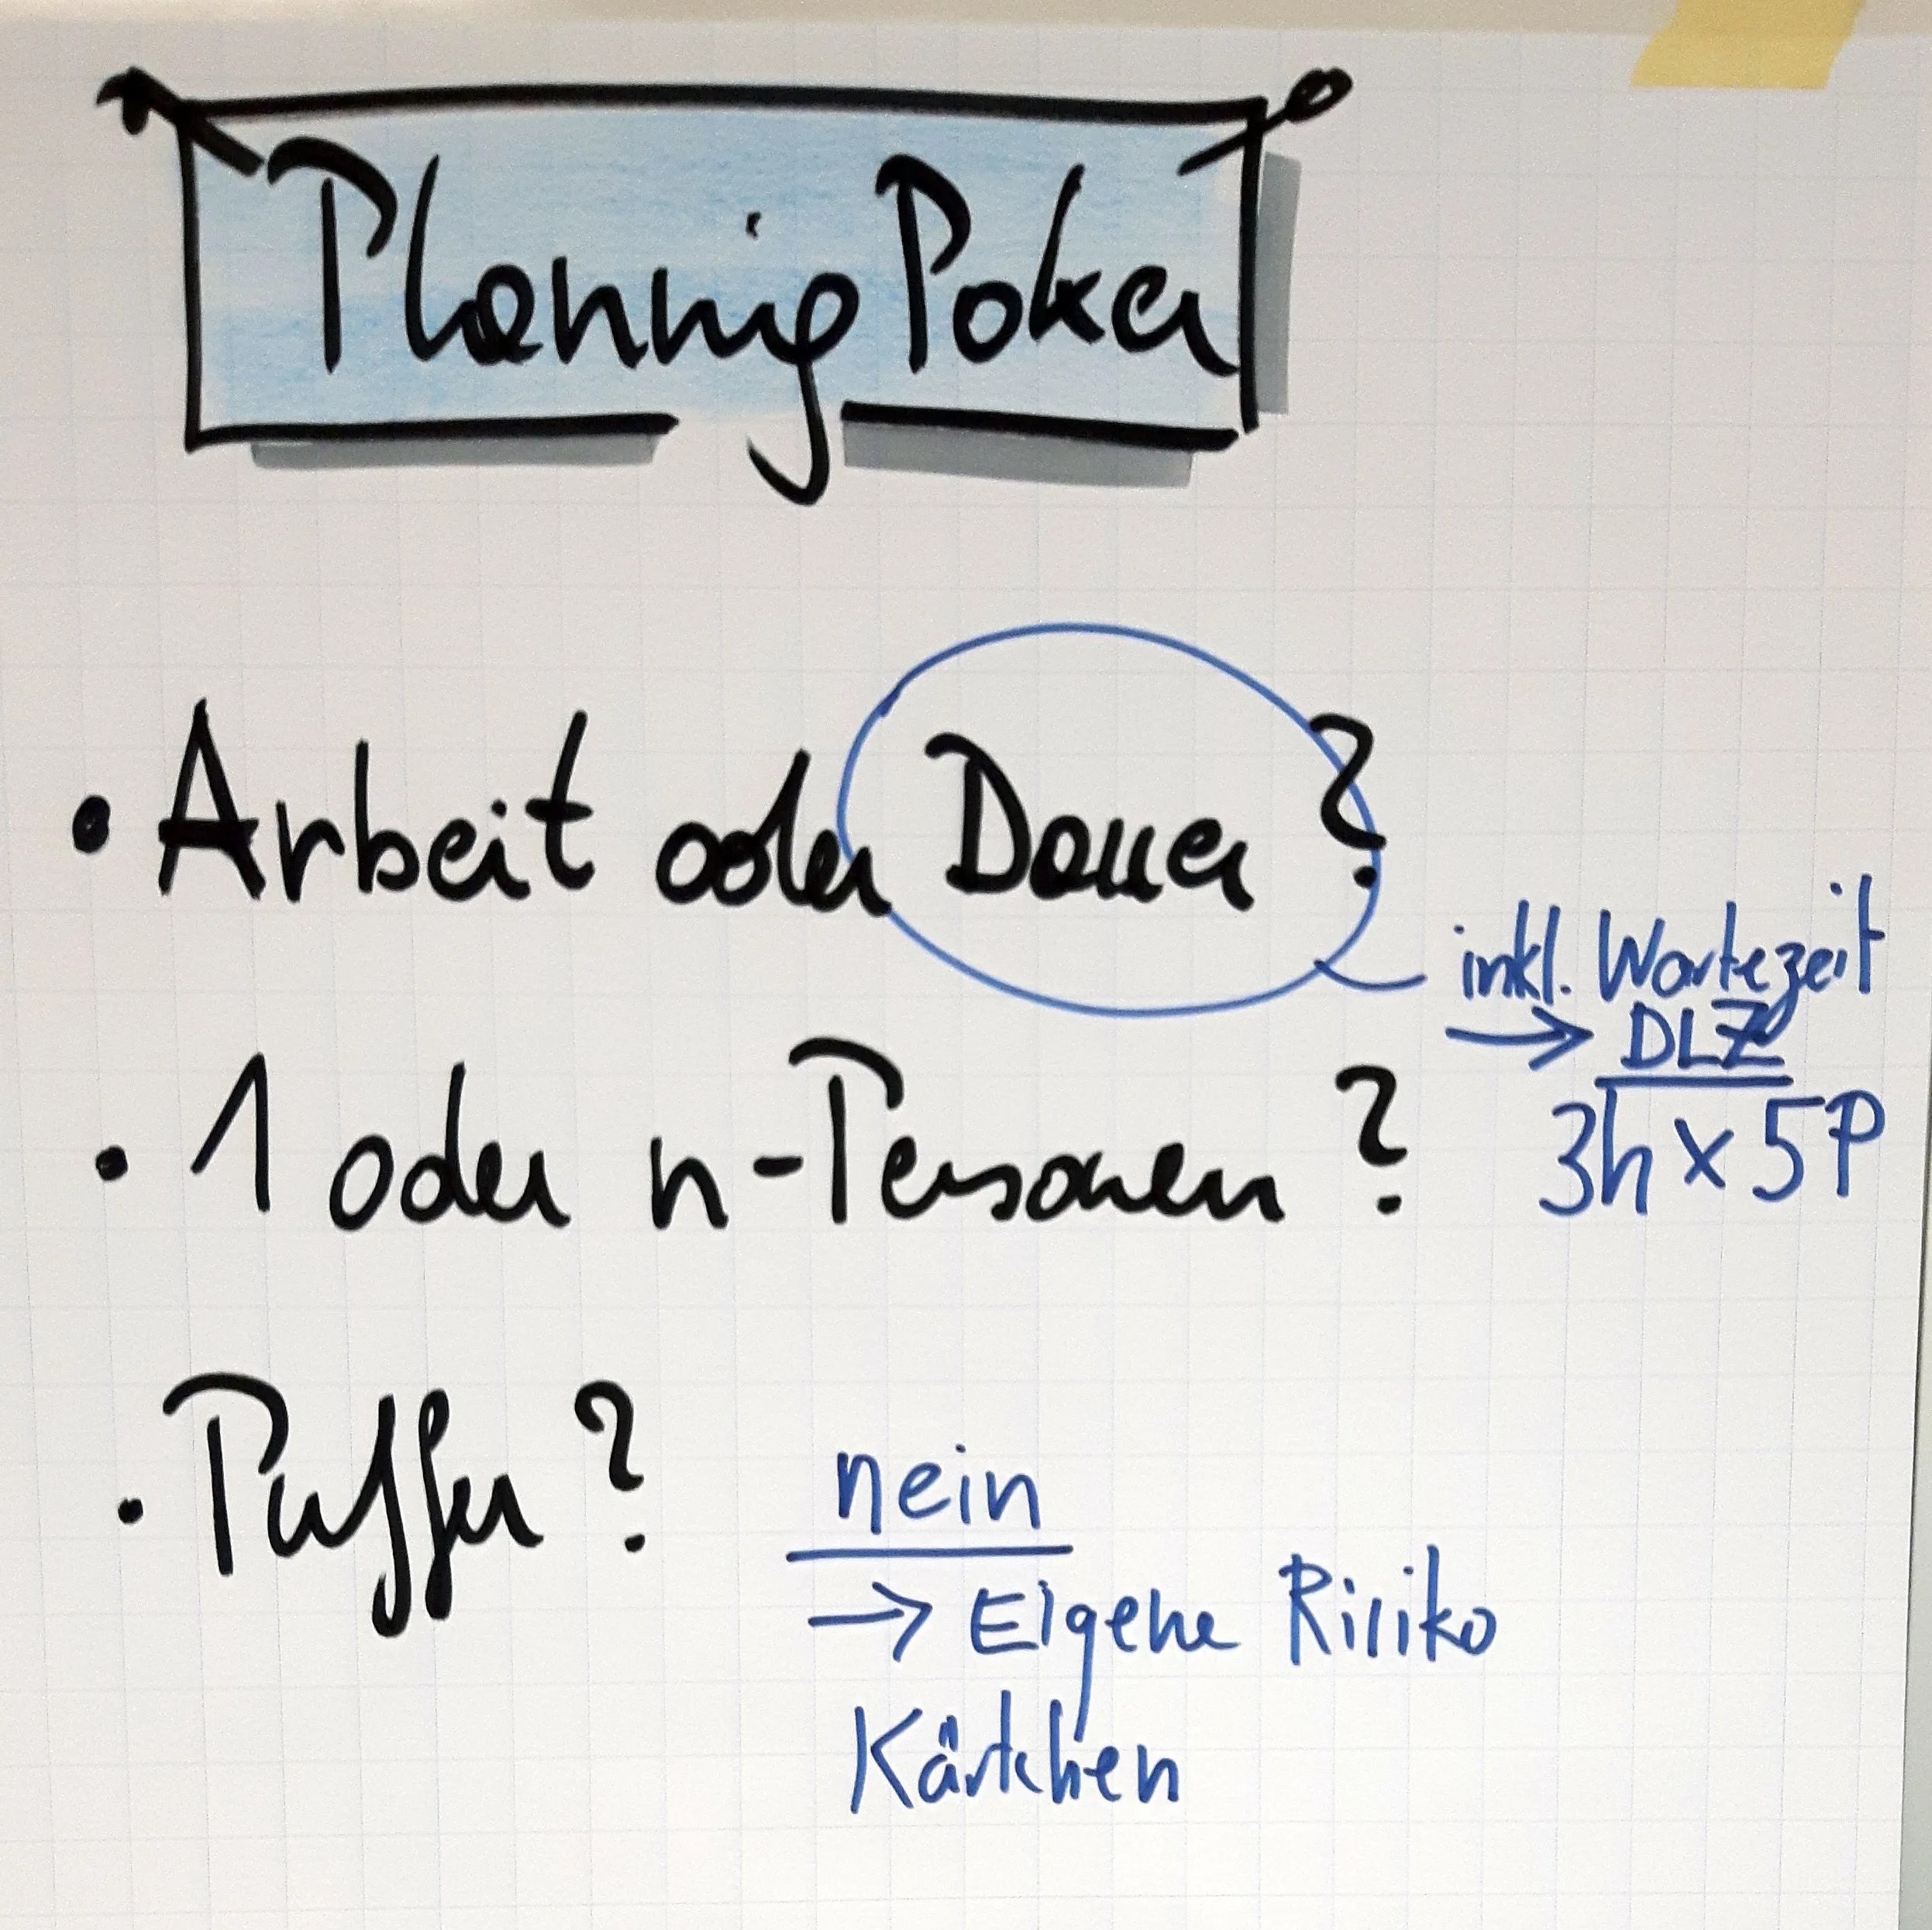 Planning Poker
• Arbeit oder Dauer?
inkl. Wartezeit
→ DLZ
• 1 oder n-Personen?
3h x 5P
• Puffer?
nein
→ Eigene Risiko
Kärtchen